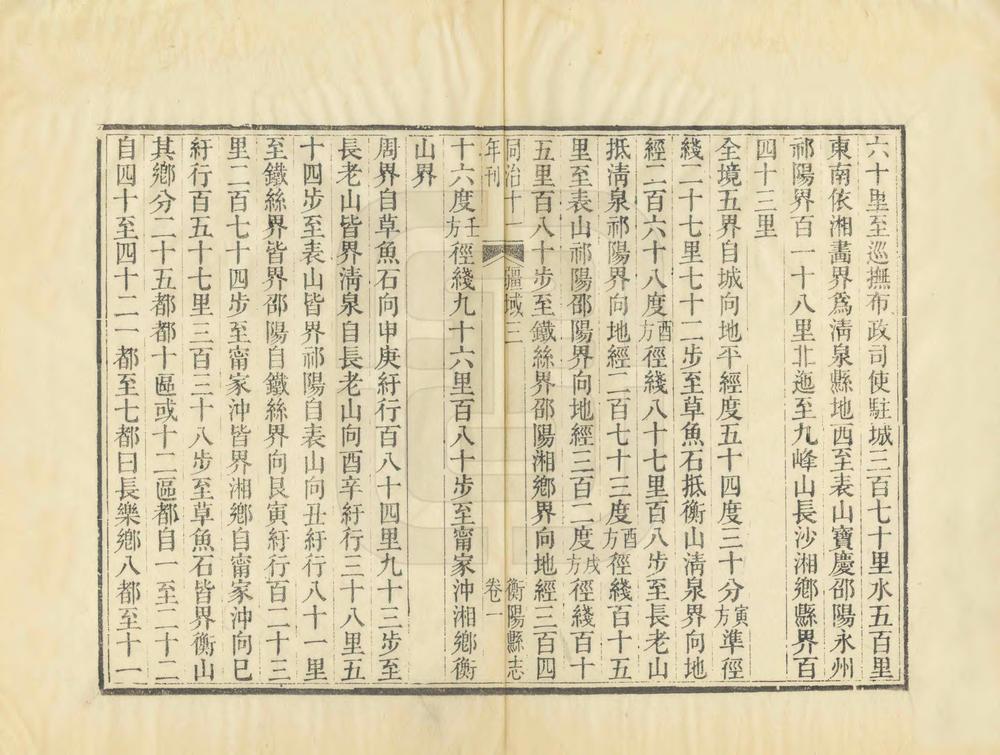 六十里至巡撫布政司使駐城三百七十里水五百里
東南依湘畫界爲淸泉縣地西至表山寶慶邵陽永州
祁陽界百一十八里北迤至九峰山長沙湘鄉縣界百
四十三里
全境五界自城向地平經度五十四度三十分寅方準徑
綫二十七里七十二步至草魚石抵衡山淸泉界向地
經二百六十八度酉方徑綫八十七里百八步至長老山
抵淸泉祁陽界向地經二百七十三度酉方徑綫百十五
里至表山祁陽邵陽界向地經三百二度戌方徑綫百十
五里百八十步至鐵絲界邵陽湘鄉界向地經三百四
同治十一年刊 疆域三 衡陽縣志卷一
十六度壬方徑綫九十六里百八十步至甯家沖湘鄉衡
山界
周界自草魚石向申庚紆行百八十四里九十三步至
長老山皆界淸泉自長老山向酉辛紆行三十八里五
十四步至表山皆界祁陽自表山向丑紆行八十一里
至鐵絲界皆界邵陽自鐵絲界向艮寅紆行百二十三
里二百七十四步至甯家沖皆界湘鄉自甯家沖向巳
紆行百五十七里三百三十八步至草魚石皆界衡山
其鄉分二十五都都十區或十二區都自一至二十二
自四十至四十二一都至七都曰長樂鄉八都至十一